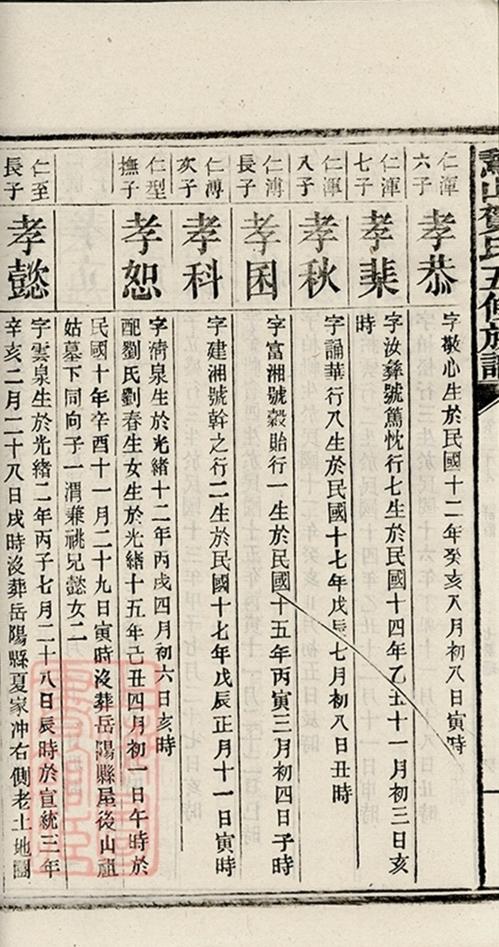 賀氏五修族譜
仁渾
六子
孝恭
字敬心生於民國十二年癸亥八月初八日寅時
仁渾
七子
孝棐
字汝彝號篤忱行七生於民國十四年乙丑十一月初三日亥
時
仁渾
八子
孝秋
字誦華行八生於民國十七年戊辰七月初八日丑時
仁溥
長子
孝困
字富湘號穀貽行一生於民國十五年丙寅三月初四日子時
仁溥
次子
孝科
字建湘號幹之行二生於民國十七年戊辰正月十一日寅時
仁型
撫子
孝恕
字濟泉生於光緒十二年丙戌四月初六日亥時
配劉氏劉春生女生於光緒十五年己丑四月初一日午時於
民國十年辛酉十一月二十九日寅時沒葬岳陽縣屋後山祖
姑墓下同向子一渭兼祧兄懿女二
仁至
長子
孝懿
字雲泉生於光緒二年丙子七月二十八日辰時於宣統三年
辛亥二月二十八日戌時沒葬岳陽縣夏家冲右側老土地園